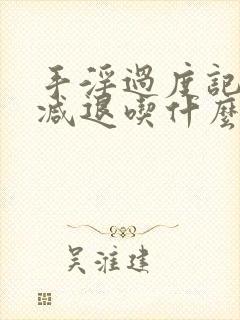 手淫過度記
減退喫什麼
吳淮建